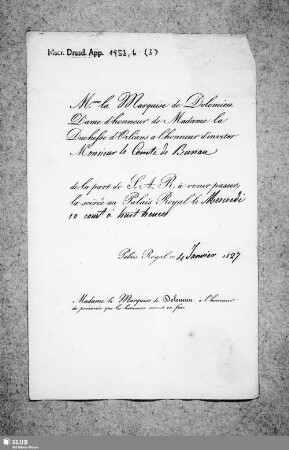 Mscr. Dresd. App. 1953, 6 (3)
Mme la Marquise de Dolomieu
Dame d'honneur de Madame la
Duchesse d'Orléans a l'honneur d'inviter
Monsieur le Comte de Bunau
de la part de S. A. R. à venir passer
la soirée au Palais Royal le Mercredi
10 court à huit heures
Palais Royal ce 4 Janvier 1827
Madame la Marquise de Dolomieu a l'honneur
de prévenir que les hommes seront en frac
SLUB